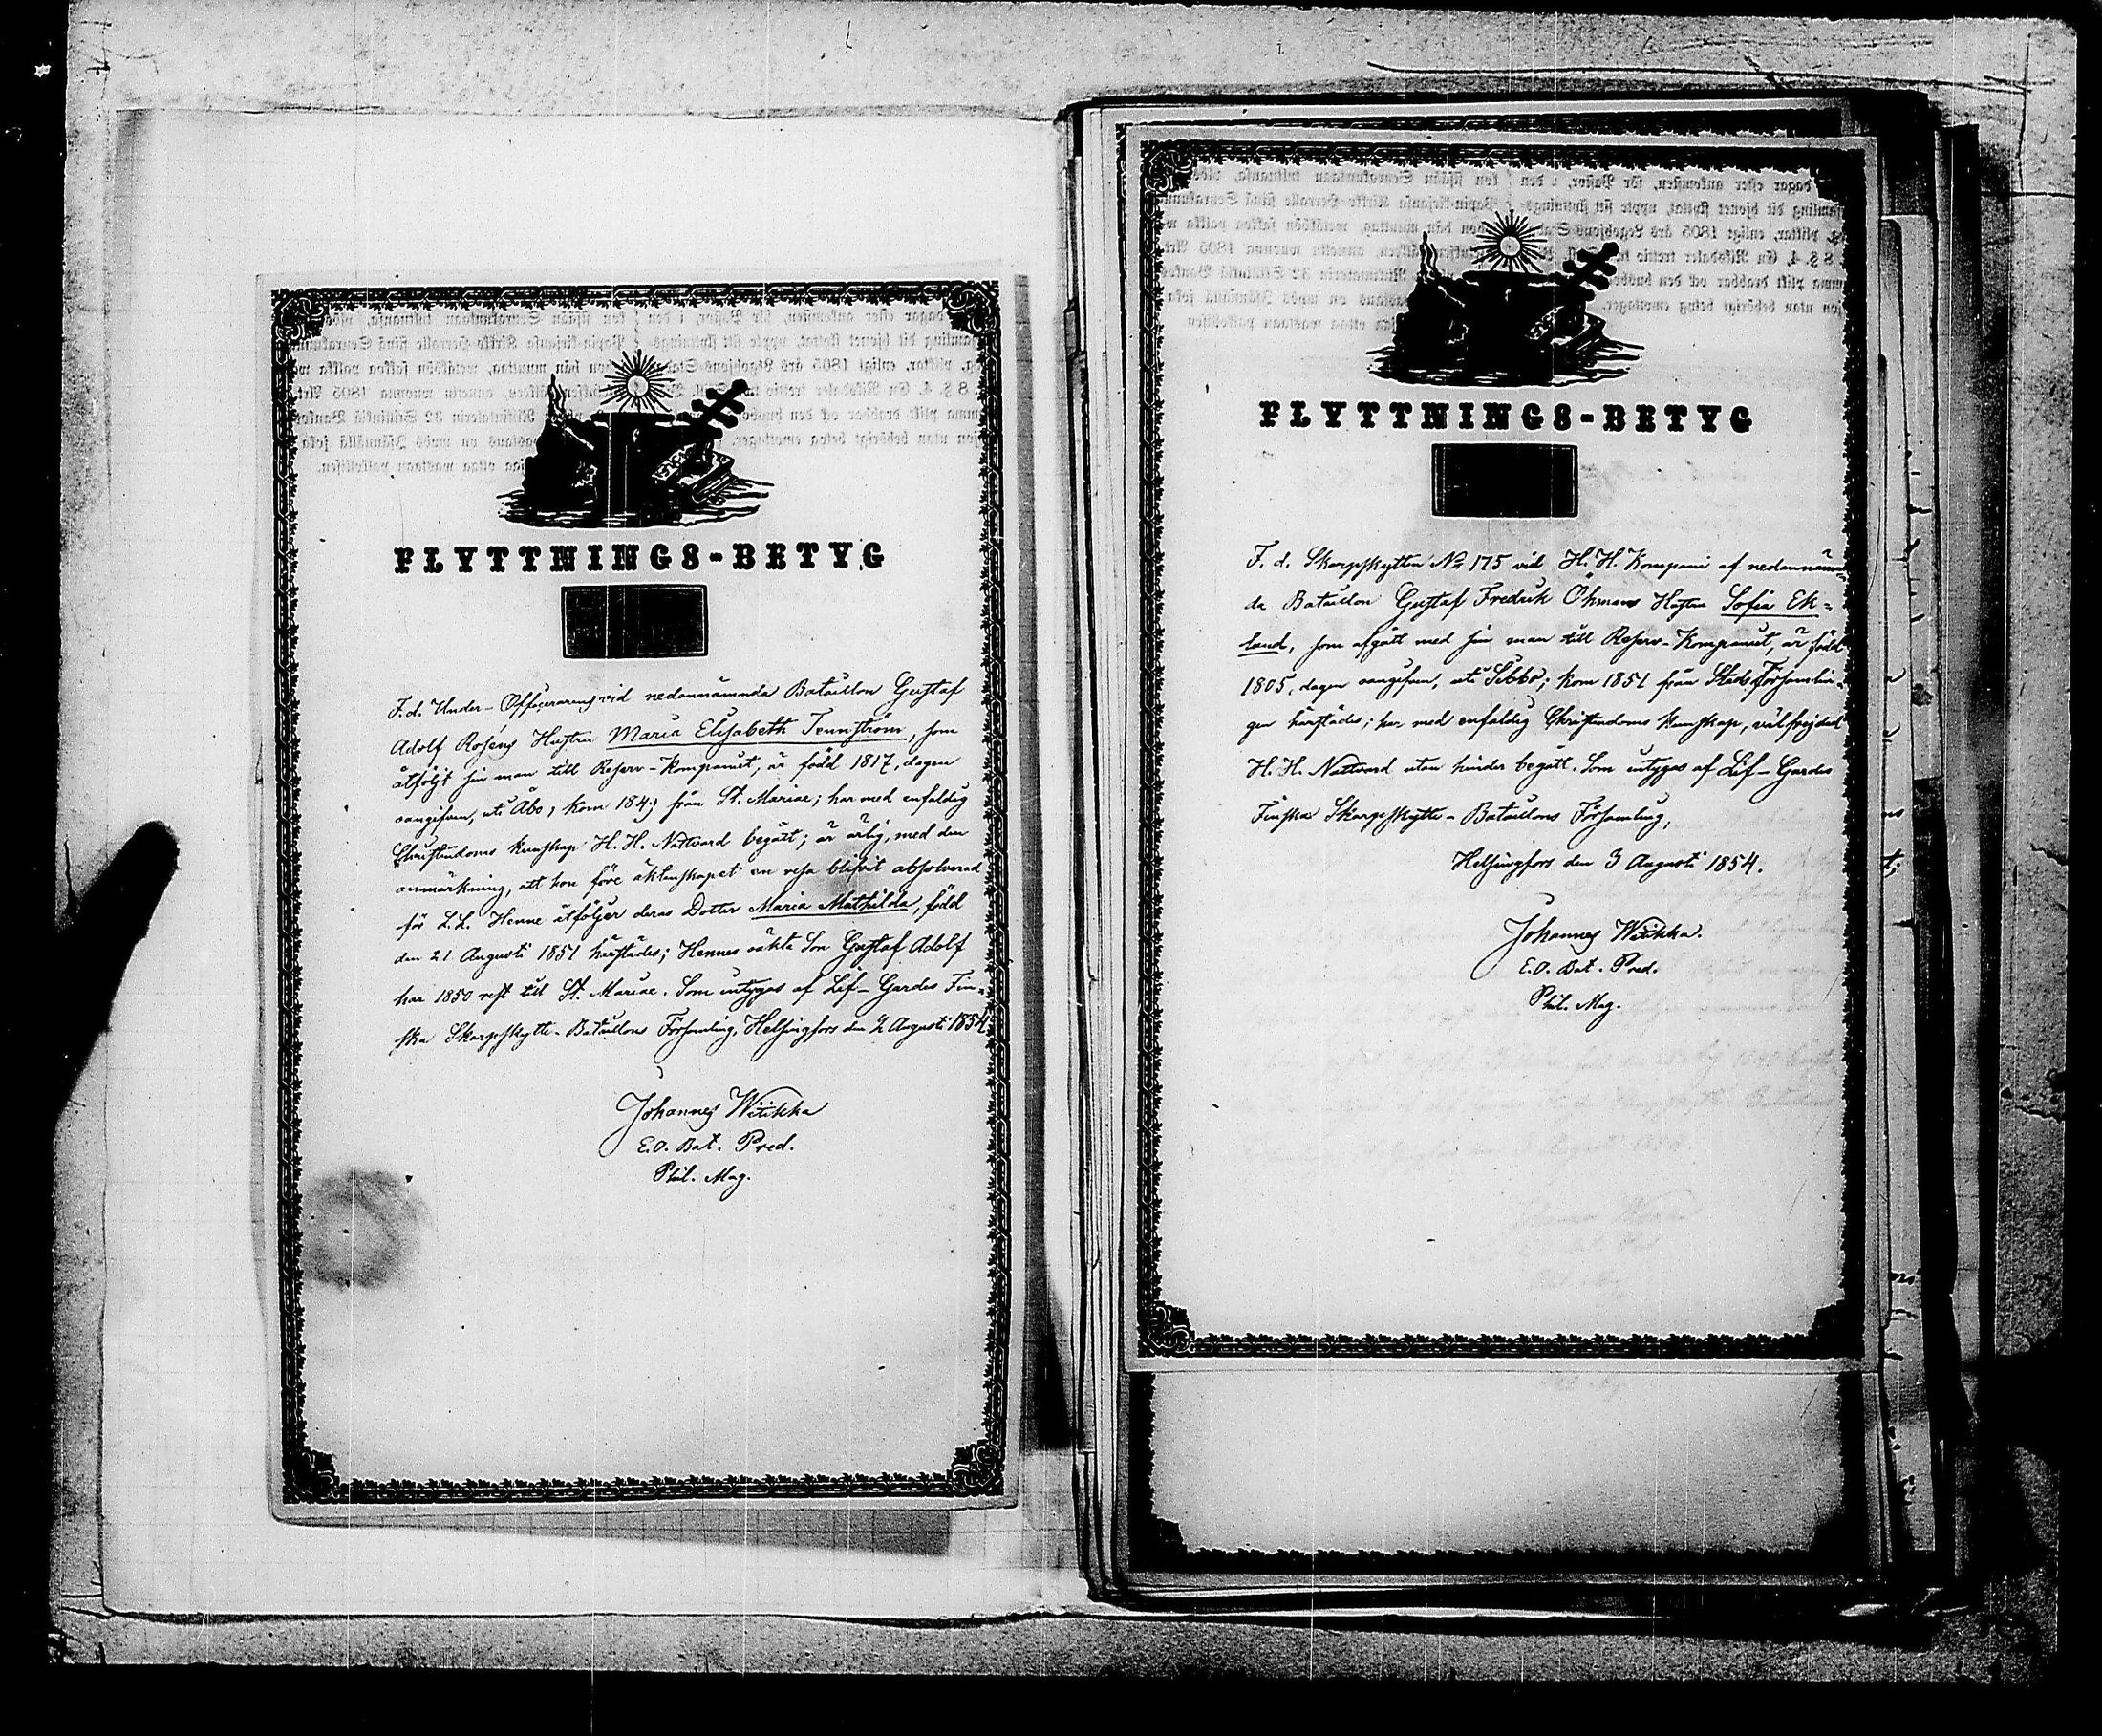 FLYTTNINGS-BETYG
F. d. Under-Officerarens vid nedannämnda Bataillon Gustaf
Adolf Roséns Hustru Maria Elisabeth Tennström, som
åtföljt sin man till Reserv-Kompaniet, är född 1817, dagen
oangifven, uti Åbo; kom 184 från St. Mariae; har med enfaldig
Christendoms kunskap H. H. Nattvard begått; är ärlig, med den
anmärkning, att hon före äktenskapet en resa blifvit absolverad
för L. L. Henne åtföljer deras Dotter Maria Mathilda, född
den 21 Augusti 1851 härstädes; Hennes oäkta Son Gustaf Adolf
har 1850 rest till St. Mariae. Som intygas af Lif-Gardes Fin-
ska Skarpskytte-Bataillons Församling, Helsingfors den 2 Augusti 1854
Johannes Witikka
E.O. Bat. Pred.
Phil. Mag.
FLYTTNINGS-BETYG
F. d. Skarpskytten No 175 vid H. H. Kompani af nedannämn-
da Bataillon Gustaf Fredrik Öhmans Hustru Sofia Ek-
lund, som afgått med sin man till Reserv-Kompaniet, är född
1805, dagen oangifven, uti Sibbo; kom 1851 från Stads Församlin-
gen härstädes; har med enfaldig Christendoms kunskap, välfrejdad
H. H. Nattvard utan hinder begått. Som intygas af Lif-Gardes
Finska Skarpskytte-Bataillons Församling,
Helsingfors den 3 Augusti 1854.
Johannes Witikka.
E.O. Bat. Pred.
Phil. Mag.